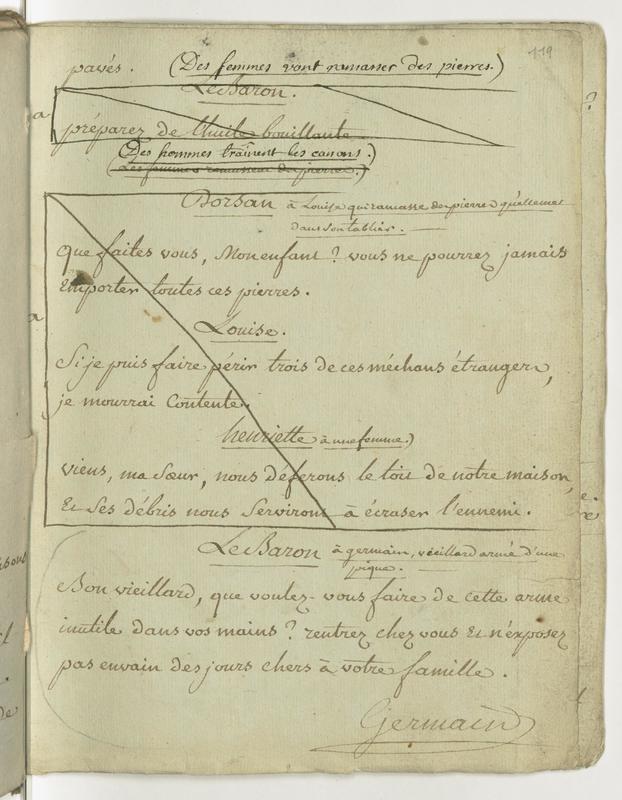 119
pavés. (Des femmes vont ramasser des pierres.)
Le Baron.
a
préparez de l'huile bouillante.
(Des hommes traînent les canons.)
(Les femmes ramassent des pierres.)
Dorsan à Louise qui ramasse des pierres qu'elle met
dans son tablier.
Que faites vous, Mon enfant ? vous ne pourrez jamais
Emporter toutes ces pierres.
a
Louise.
Si je puis faire périr trois de ces méchans étrangers,
je mourrai Contente.
henriette à une femme.)
viens, ma Sœur, nous déferons le toit de notre maison,
Et Ses débris nous Serviront à écraser l'ennemi.
Le Baron à germain, vieillard armé d'une
pique.
Bon vieillard, que voulez-vous faire de cette arme
inutile dans vos mains ? rentrez chez vous Et n'exposez
pas envain des jours chers à votre famille.
Germain